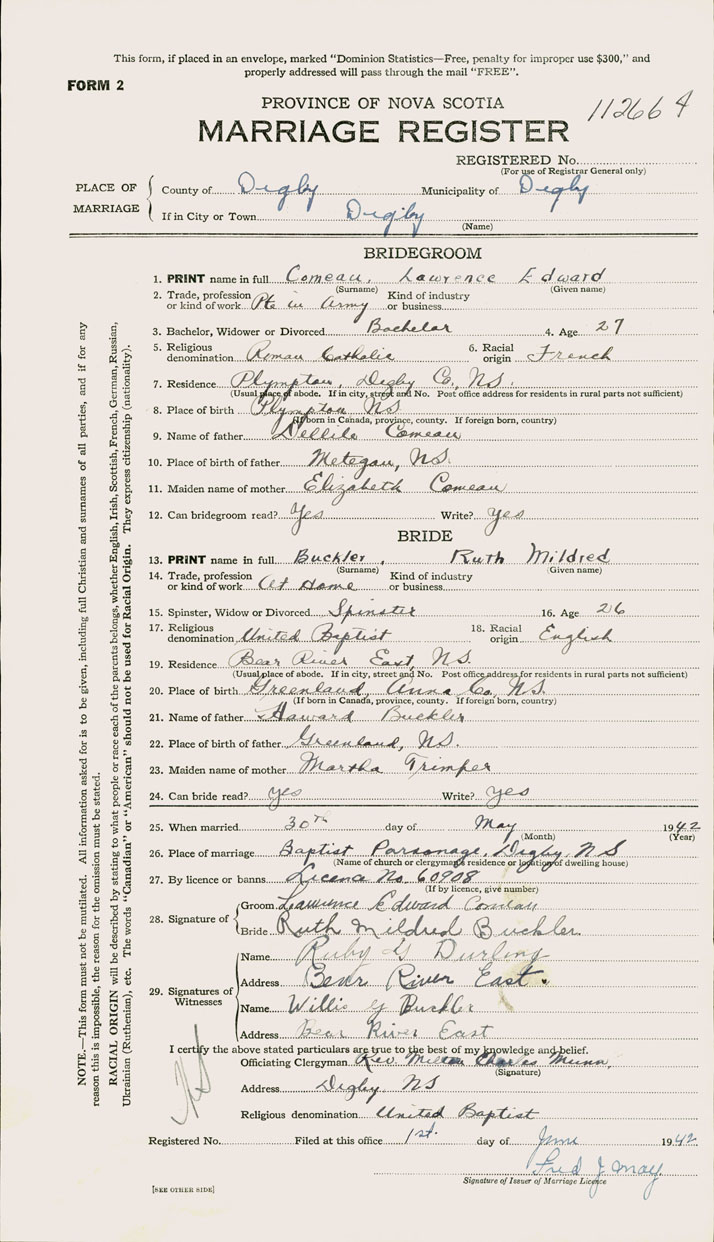 This form, if placed in an envelope, marked "Dominion Statistics—Free, penalty for improper use $300," and
properly addressed will pass through the mail "FREE".
FORM 2
PROVINCE OF NOVA SCOTIA
112664
MARRIAGE REGISTER
REGISTERED No.
(For use of Registrar General only)
PLACE OF MARRIAGE
County of Digby Municipality of Digby
If in City or Town Digby
(Name)
BRIDEGROOM
1. PRINT name in full Comeau, Lawrence Edward
(Surname) (Given name)
2. Trade, profession or kind of work Pte in Army Kind of industry or business
3. Bachelor, Widower or Divorced Bachelor 4. Age 27
5. Religious denomination Roman Catholic 6. Racial origin French
7. Residence Plympton, Digby Co., N.S.
(Usual place of abode. If in city, street and No. Post office address for residents in rural parts not sufficient)
8. Place of birth Plympton NS
(If born in Canada, province, county. If foreign born, country)
9. Name of father Comeau
10. Place of birth of father Metegan, N.S.
11. Maiden name of mother Elizabeth Comeau
12. Can bridegroom read? Yes Write? Yes
BRIDE
13. PRINT name in full Buckler, Ruth Mildred
(Surname) (Given name)
14. Trade, profession or kind of work At Home Kind of industry or business
15. Spinster, Widow or Divorced Spinster 16. Age 26
17. Religious denomination United Baptist 18. Racial origin English
19. Residence Bear River East, N.S.
(Usual place of abode. If in city, street and No. Post office address for residents in rural parts not sufficient)
20. Place of birth Greenland, Anna Co, N.S.
(If born in Canada, province, county. If foreign born, country)
21. Name of father Howard Buckler
22. Place of birth of father Greenland, N.S.
23. Maiden name of mother Martha Trimper
24. Can bride read? yes Write? yes
25. When married 30th day of May 1942
(Month) (Year)
26. Place of marriage Baptist Parsonage, Digby, N S
(Name of church or clergyman's residence or location of dwelling house)
27. By licence or banns Licence No. 60908
(If by licence, give number)
28. Signature of
Groom Lawrence Edward Comeau
Bride Ruth Mildred Buckler
29. Signatures of Witnesses
Name Ruby G Durling
Address Bear River East.
Name Willis G Buckler
Address Bear River East
I certify the above stated particulars are true to the best of my knowledge and belief.
Officiating Clergyman Rev. Milton Charles Munn,
(Signature)
Address Digby NS
Religious denomination United Baptist
Registered No. Filed at this office 1st. day of June 1942
Fred J May
Signature of Issuer of Marriage Licence
[SEE OTHER SIDE]
NOTE.—This form must not be mutilated. All information asked for is to be given, including full Christian and surnames of all parties, and if for any
reason this is impossible, the reason for the omission must be stated.
RACIAL ORIGIN will be described by stating to what people or race each of the parents belongs, whether English, Irish, Scottish, French, German, Russian,
Ukrainian (Ruthenian), etc. The words "Canadian" or "American" should not be used for Racial Origin. They express citizenship (nationality).